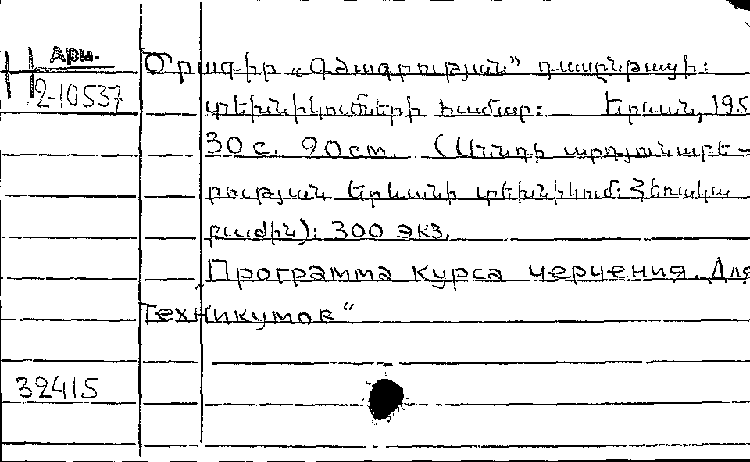 Арм.
2-10537
Ծրագիր „Գծագրության” դասընթացի:
տեխնիկումների համար: Երևան, 195
30 с. 20 см. (Սննդի արդյունաբե-
րության Երևանի տեխնիկում: Հեռակա
բաժին): 300 экз.
Программа курса черчения. Для
техникумов“
32415